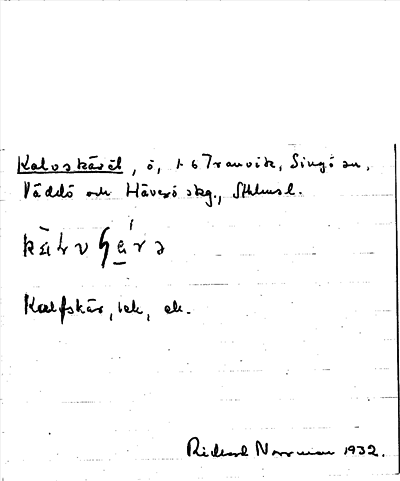 Kalvskäret, ö, t. 6 Tranvik, Singö sn,
Väddö och Häverö skg., Sthlmsl.
Kalfskär, ek, ek.
Rickard Norrman 1932.